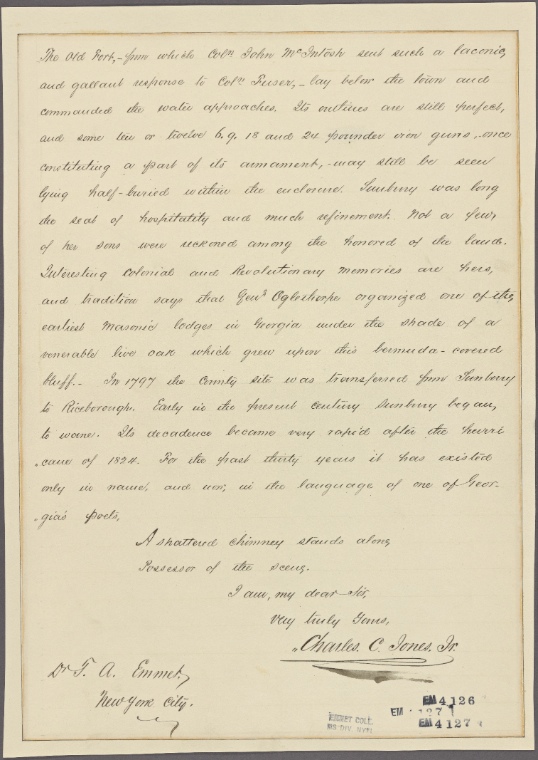 The Old Fort,- from which Col: John McIntosh sent such a laconic,
and gallant response to Col: Fuser,- lay below the town and
commanded the water approaches. Its outlines are still perfect,
and some ten or twelve 6, 9, 18 and 24 pounder iron guns,- once
constituting a part of its armament,- may still be seen
lying half-buried within the enclosure. Sunbury was long
the seat of hospitality and much refinement. Not a few,
of her sons were reckoned among the honored of the land.
Interesting Colonial and Revolutionary memories are hers,
and tradition says that Gen: Oglethorpe organized one of the
earliest Masonic lodges in Georgia under the shade of a
venerable live oak which grew upon this bermuda-covered
bluff.- In 1797 the County site was transferred from Sunbury
to Riceborough. Early in the present century Sunbury began,
to wane. Its decadence became very rapid after the hurri
-cane of 1824. For the past thirty years it has existed
only in name, and now, in the language of one of Geor-
-gia's poets,
A shattered chimney stands alone
Possessor of the scene.
I am, my dear Sir,
Very truly Yours,
Charles. C. Jones. Jr.
Dr T. A. Emmet,
New York City.
EM 4126
EM
EM 4127
EMMET COLL.